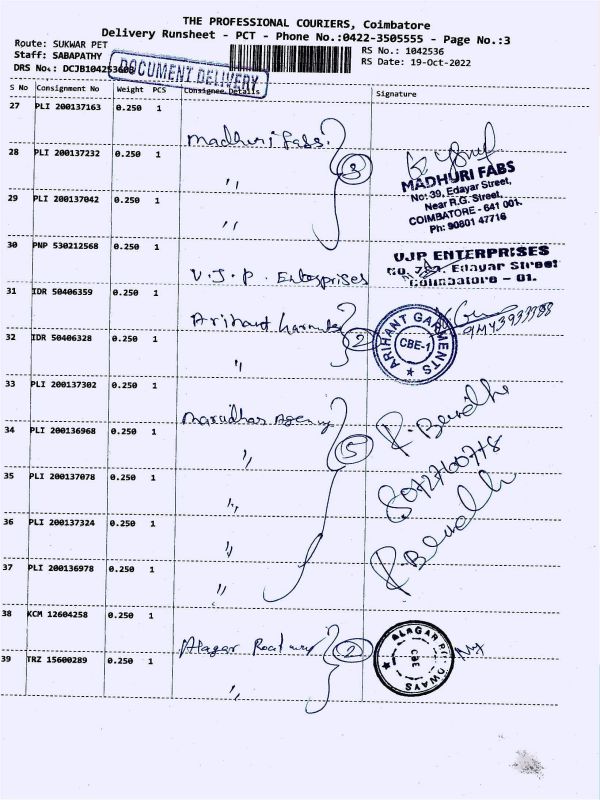 THE PROFESSIONAL COURIERS, Coimbatore
Delivery Runsheet - PCT - Phone No.:0422-3505555 - Page No.:3
Route: SUKWAR PET
Staff: SABAPATHY
DRS No.: DCJB104253608
RS No.: 1042536
RS Date: 19-Oct-2022
DOCUMENT DELIVERY
S No Consignment No Weight PCS Consignee Details Signature
27 PLI 200137163 0.250 1
Madhuri fabs.
28 PLI 200137232 0.250 1
〃 3
29 PLI 200137042 0.250 1
〃
MADHURI FABS
No: 39, Edayar Street,
Near R.G. Street,
COIMBATORE - 641 001.
Ph: 90801 47716
30 PNP 530212568 0.250 1
V.J.P. Enterprises
UJP ENTERPRISES
Edayar Street
Coimbatore - 01.
31 IDR 50406359 0.250 1
Arihant
32 IDR 50406328 0.250 1
〃 2
ARIHANT GARMENTS
CBE-1
33 PLI 200137302 0.250 1
Marudhar Agency
34 PLI 200136968 0.250 1
〃 5
35 PLI 200137078 0.250 1
〃
8072760778
36 PLI 200137324 0.250 1
〃
37 PLI 200136978 0.250 1
〃
38 KCM 12604258 0.250 1
Alagar Roadways 2
39 TRZ 15600289 0.250 1
〃
ALAGAR ROADWAYS
CBE